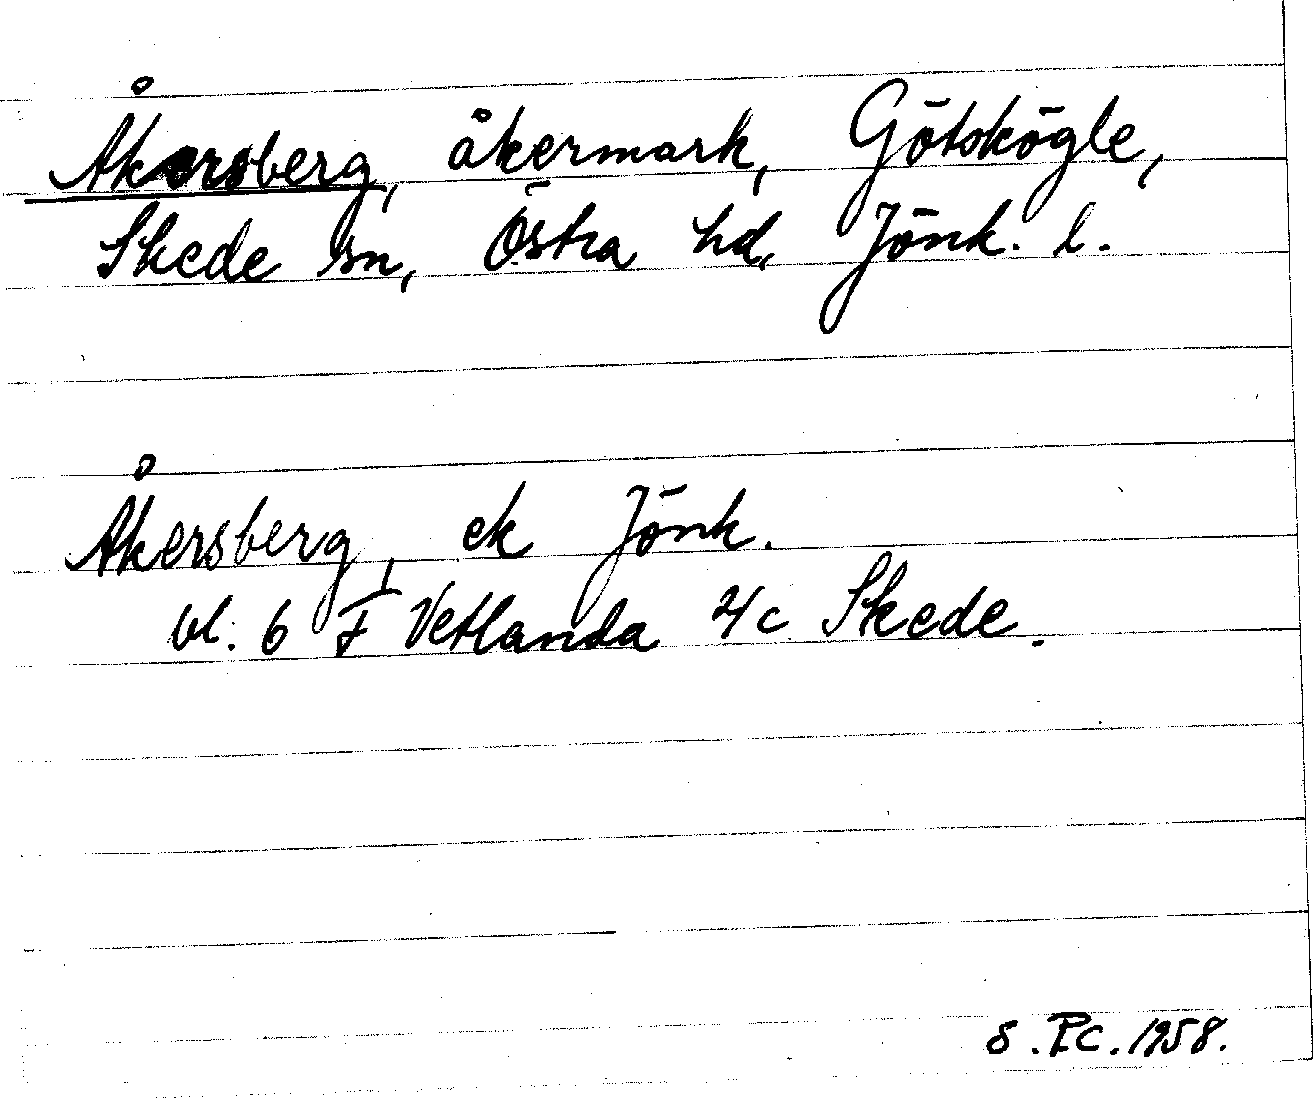 Åkersberg, åkermark, Götskögle,
Skede sn, Östra hd, Jönk. l.
Åkersberg, ek Jönk.
bl. 6 F Vetlanda 4c Skede.
S.P.C. 1958.